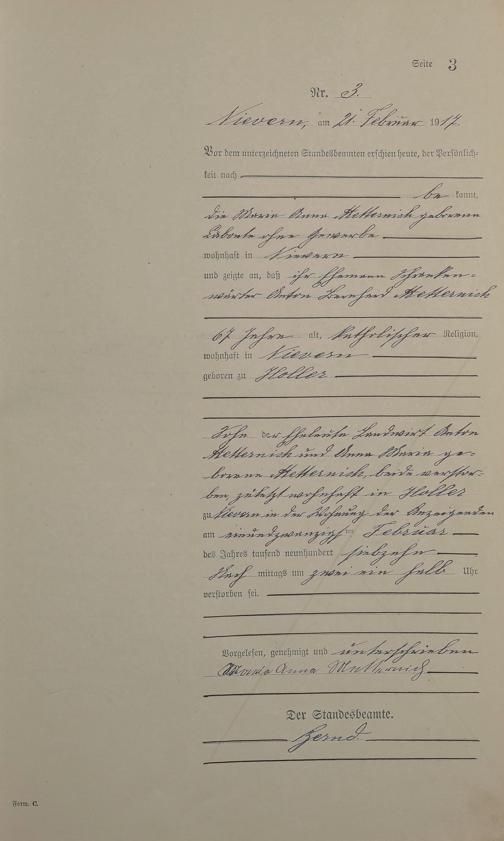 Seite 3
Nr. 3.
Nievern, am 21. Februar 1917
Vor dem unterzeichneten Standesbeamten erschien heute, der Persönlich-
keit nach
be kannt,
die Maria Anna Metternich geborene
Labonte ohne Gewerbe
wohnhaft in Nievern
und zeigte an, daß ihr Ehemann Schranken-
wärter Anton Bernhard Metternich
67 Jahre alt, katholischer Religion,
wohnhaft in Nievern
geboren zu Holler
Sohn der Eheleute Landwirt Anton
Metternich und Anna Maria ge-
borene Metternich, beide verstor-
ben, zuletzt wohnhaft in Holler
zu Nievern in der Wohnung der Anzeigenden
am einundzwanzigsten Februar
des Jahres tausend neunhundert siebzehn
Nach mittags um zwei ein halb Uhr
verstorben sei.
Vorgelesen, genehmigt und unterschrieben
Maria Anna Metternich
Der Standesbeamte.
Form. C.